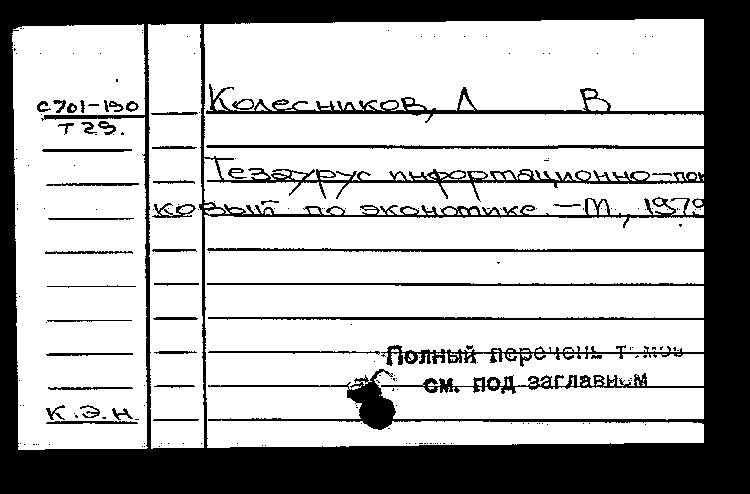 С701-190
Т 29.
Колесников, Л В
Тезаурус информационно-пои
ковый по экономике. — М., 1979
Полный перечень томов
см. под заглавием
К.Э.Н.